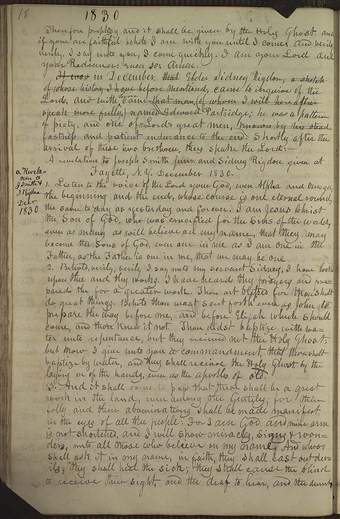 18.
1830
Therefore prophesy and it shall be given by the Holy Ghost and
if you are faithful behold I am with you until I come: and verily
verily, I say unto you, I come quickly. I am your Lord and
your Redeemer. Even so: Amen.
It was in December, that Elder Sidney Rigdon, a sketch
of whose history I have before mentioned, came to inquire of the
Lord, and with came that man, of whom I will hereafter
speak more fully, named Edward Partridge; he was a pattern
of piety, and one of the Lord's great men, known by his stead
fastness and patient endurance to the end. Shortly after the
arrival of these two brethren, thus spake the Lord:—
A revelation to Joseph Smith junr. and Sidney Rigdon given at
Fayette, N.Y. December 1830.
a Revela-
tion to
J Smith &
S Rigdon
Dec.
1830
1. Listen to the voice of the Lord your God, even Alpha and Omega,
the beginning and the end, whose course is one eternal round,
the same to day as yesterday and forever. I am Jesus Christ
the Son of God, who was crucified for the sins of the world,
even as many as will believe on my name, that they may
become the Sons of God, even one in me as I am one in the
Father, as the Father is one in me, that we may be one.
2. Behold, verily, verily I say unto my servant Sidney, I have looked
upon thee and thy works. I have heard thy prayers and pre
pared thee for a greater work. Thou art blessed for thou shalt
do great things. Behold thou wast sent forth even as John to
prepare the way before me, and before Elijah which should
come, and thou knew it not. Thou didst baptize with wa-
ter unto repentance, but they received not the Holy Ghost;
but now I give unto you a commandment, that thou shalt
baptize by water, and they shall receive the Holy Ghost by the
laying on of the hands, even as the apostles of old.
3. And it shall come to pass that there shall be a great
work in the land, even among the Gentiles, for their
folly and their abominations shall be made manifest
in the eyes of all the people. For I am God and mine arm
is not shortened, and I will show miracles, signs & won-
ders, unto all those who believe on my name; And whoso
shall ask it in my name, in faith, they shall cast out dev-
ils; they shall heal the sick; they shall cause the blind
to receive their sight, and the deaf to hear, and the dumb